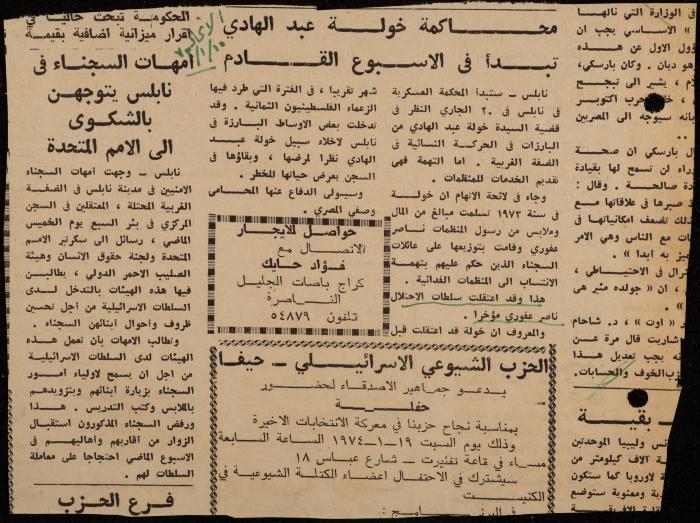 في الوزارة التي نالها
» الاساسي يجب ان
ؤول الاول عن هذه
هو ديان . وكان بارسكي،
م ، يشير الى تبجح
حرب اكتوبر
بانه سيوجه الى المصريين
ال بارسكي ان صحة
دراء لن تسمح لها بقيادة
صالحة . وقال :
صبرها في علاقاتها مع
ذلك تضعف امكانياتها في
مع الناس وهي الامر
يز به ابدا » .
نرال في الاحتياطي ،
، ان « جولده مئير هي
ر « اوت » ، د. شاحام
شاريت قال مرة عن
انه يجب تعديل هذا
الخوف والحسابات.
بقية
نس وليبيا الموحدتين
الاف كيلومتر من
لاوروبا كما ستكون
ومعنوية ستوضع
محاكمة خولة عبد الهادي
تبدأ في الاسبوع القادم
نابلس – ستبدأ المحكمة العسكرية
في نابلس في ٢٠ الجاري النظر في
قضية السيدة خولة عبد الهادي من
البارزات في الحركة النسائية في
الضفة الغربية . اما التهمة فهي
تقديم الخدمات للمنظمات .
وجاء في لائحة الاتهام ان خولة
في سنة ١٩٧٢ تسلمت مبالغ من المال
وملابس من رسول المنظمات ناصر
عفوري وقامت بتوزيعها على عائلات
السجناء الذين حكم عليهم بتهمة
الانتساب الى المنظمات الفدائية .
هذا وقد اعتقلت سلطات الاحتلال
ناصر عفوري مؤخرا .
والمعروف ان خولة قد اعتقلت قبل
شهر تقريبا ، في الفترة التي طرد فيها
الزعماء الفلسطينيون الثمانية . وقد
تدخلت بعض الاوساط البارزة في
نابلس لاخلاء سبيل خولة عبد
الهادي نظرا لمرضها ، وبقاؤها في
السجن يعرض حياتها للخطر .
وسيتولى الدفاع عنها المحامي
وصفي المصري .
حواصل للايجار
الاتصال مع
فؤاد حايك
كراج باصات الجليل
الناصرة
تلفون ٥٤٨٧٩
الحزب الشيوعي الاسرائيلي – حيفا
يدعو جماهير الاصدقاء لحضور
حفلة
بمناسبة نجاح حزبنا في معركة الانتخابات الاخيرة
وذلك يوم السبت ١٩–١–١٩٧٤ الساعة السابعة
مساء في قاعة تفئيرت – شارع عباس ١٨
سيشترك في الاحتفال اعضاء الكتلة الشيوعية في
الكنيست
الحكومة تبحث حاليا في
اقرار ميزانية اضافية بقيمة
امهات السجناء في
نابلس يتوجهن
بالشكوى
الى الامم المتحدة
نابلس – وجهت امهات السجناء
الامنيين في مدينة نابلس في الضفة
الغربية المحتلة ، المعتقلين في السجن
المركزي في بئر السبع يوم الخميس
الماضي ، رسائل الى سكرتير الامم
المتحدة ولجنة حقوق الانسان وهيئة
الصليب الاحمر الدولي ، يطالبن
فيها هذه الهيئات بالتدخل لدى
السلطات الاسرائيلية من أجل تحسين
ظروف وأحوال أبنائهن السجناء .
وتطالب الامهات بأن تعمل هذه
الهيئات لدى السلطات الاسرائيلية
من اجل ان يسمح لاولياء امور
السجناء بزيارة أبنائهم وبتزويدهم
بالملابس وكتب التدريس . هذا
ورفض السجناء المذكورون استقبال
الزوار من أقاربهم وأهاليهم في
الاسبوع الماضي احتجاجا على معاملة
السلطات لهم .
فرع الحزب